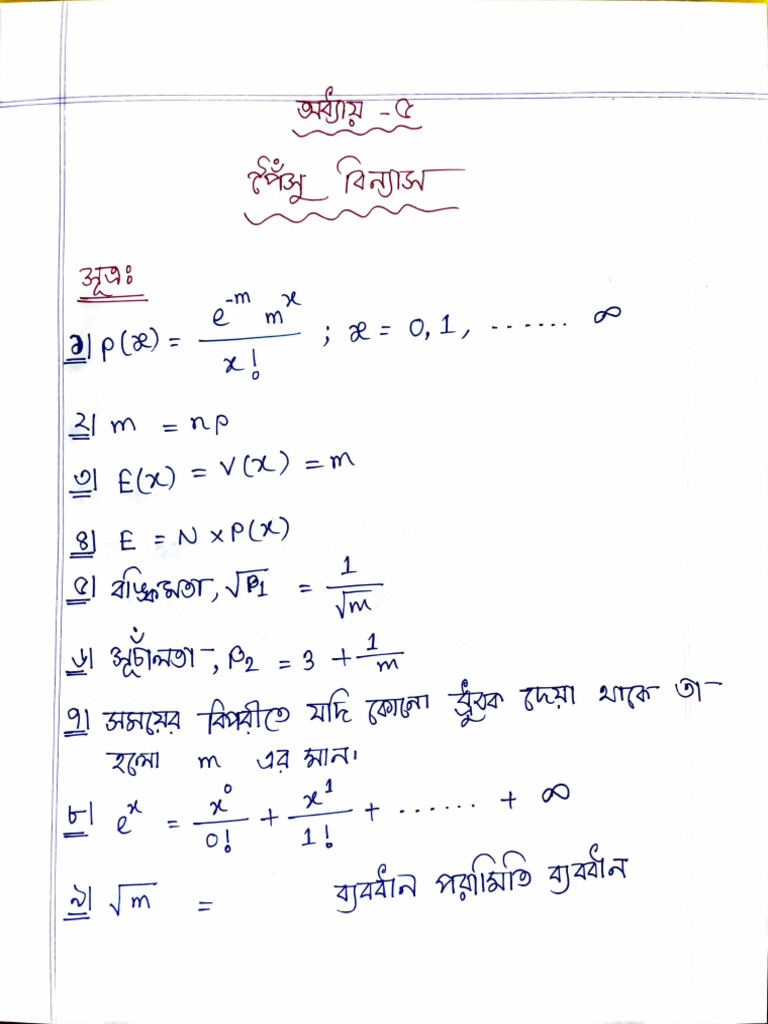 অধ্যায় - ৫
পৈঁসু বিন্যাস
সূত্রঃ
১| P(x) = e^-m m^x / x! ; x = 0, 1, ...... ∞
২| m = np
৩| E(x) = V(x) = m
৪| E = N × P(x)
৫| বঙ্কিমতা, √β1 = 1/√m
৬| সূচাঁলতা, β2 = 3 + 1/m
৭| সময়ের বিপরীতে যদি কোনো ধ্রুবক দেয়া থাকে তা
হলো m এর মান।
৮| e^x = x^0/0! + x^1/1! + ...... + ∞
৯| √m = ব্যবধান পরামিতি ব্যবধান